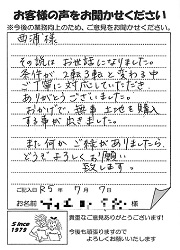 お客様の声をお聞かせください
※今後の業務向上のため、ご意見をお聞かせください。
西浦様
その節はお世話になりました。
条件が2転3転と変わる中
ご丁寧に対応していただき
ありがとうございました。
おかげで、無事土地を購入
する事が出きました。
また何かご縁がありましたら、
どうぞよろしくお願い
致します。
ご記入日 R5年 7月 7日
お名前
Since
1979
貴重なご意見ありがとうございます!
今後も頑張りますので
よろしくお願いいたします